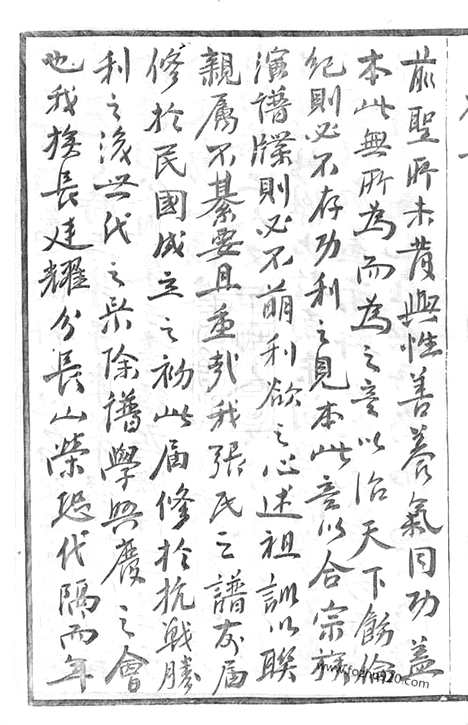 前聖所未發與性善養氣同功蓋
本此無所為而為之意以治天下飭倫
紀則必不存功利之見本此意以合宗族
演譜牒則必不萌利欲之心述祖訓以聯
親属不綦要且重哉我張氏之譜友届
修於民國成立之初此届修於抗戰勝
利之後世代之杂除譜學興廢之會
也我族長廷耀分長山榮恐代隔而年
www.fozhu920.com